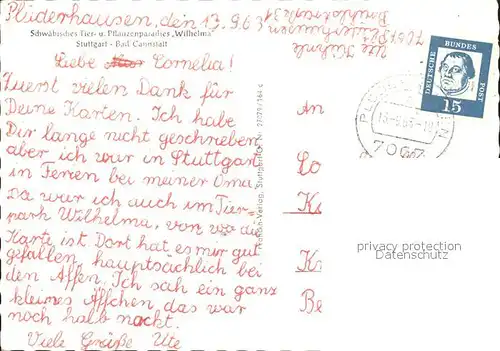 Plüderhausen, den 13.9.63
Schwäbisches Tier- u. Pflanzenparadies „Wilhelma"
Stuttgart - Bad Cannstatt
Liebe Cornelia!
Zuerst vielen Dank für
Deine Karten. Ich habe
Dir lange nicht geschrieben
aber ich war in Stuttgart
in Ferien bei meiner Oma.
Da war ich auch im Tier-
park Wilhelma, von wo die
Karte ist. Dort hat es mir gut
gefallen, hauptsächlich bei
den Affen. Ich sah ein ganz
kleines Äffchen, das war
noch halb nackt.
Viele Grüße Ute
Ute
7067
DEUTSCHE BUNDESPOST
15
7067
An
Co
K
K
Be
privacy protection
Datenschutz